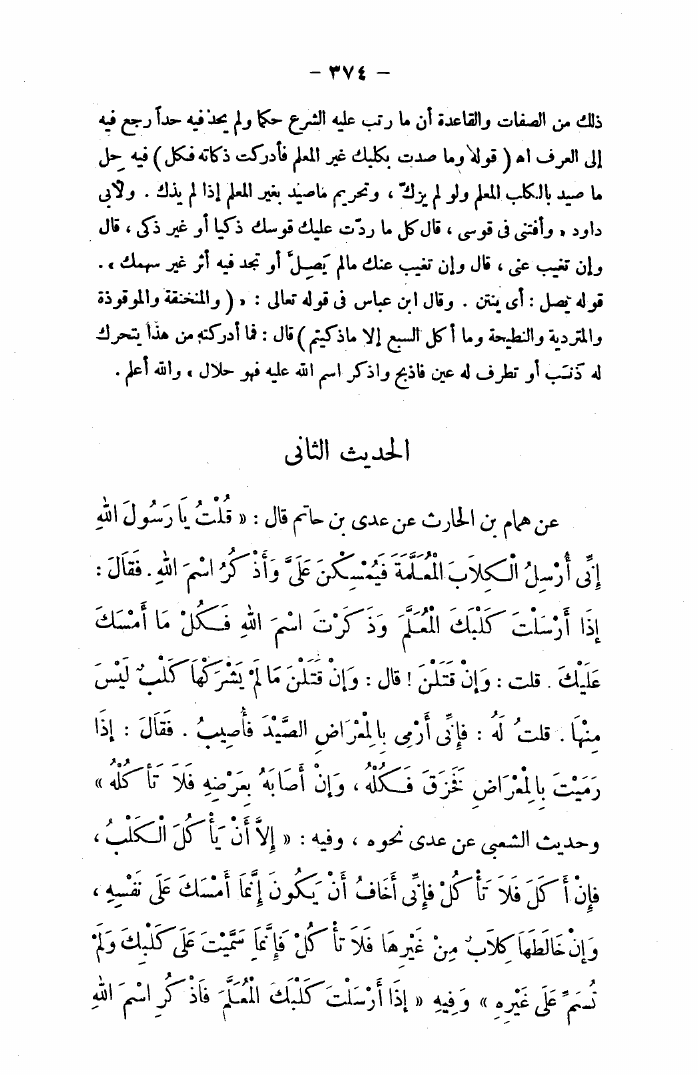 - ٣٧٤ -
ذلك من الصفات والقاعدة أن ما رتب عليه الشرع حكما ولم يحد فيه حداً رجع فيه
إلى العرف اه ( قوله وما صدت بكلبك غير المعلم فأدركت ذكاته فكل ) فيه حل
ما صيد بالكلب المعلم ولو لم يزكّ ، وتحريم ماصيد بغير المعلم إذا لم يذك . ولأبى
داود « وأفتنى فى قوسى ، قال كل ما ردّت عليك قوسك ذكيا أو غير ذكى ، قال
وإن تغيب عنى ، قال وإن تغيب عنك مالم يَصِلَّ أو تجد فيه أثر غير سهمك » .
قوله يصل : أى ينتن . وقال ابن عباس فى قوله تعالى : « ( والمنخنقة والموقوذة
والمتردية والنطيحة وما أكل السبع إلا ماذكيتم ) قال : فما أدركته من هذا يتحرك
له ذَنَب أو تطرف له عين فاذبح واذكر اسم الله عليه فهو حلال » والله أعلم .
الحديث الثانى
عن همام بن الحارث عن عدى بن حاتم قال : « قُلْتُ يَا رَسُولَ اللهِ
إِنِّى أُرْسِلُ الْكِلاَبَ الْمُعَلَّمَةَ فَيُمْسِكْنَ عَلَىَّ وَأَذْكُرُ اسْمَ اللهِ . فَقَالَ :
إِذَا أَرْسَلْتَ كَلْبَكَ الْمُعَلَّمَ وَذَكَرْتَ اسْمَ اللهِ فَكُلْ مَا أَمْسَكَ
عَلَيْكَ . قلت : وَإِنْ قَتَلْنَ ! قال : وَإِنْ قَتَلْنَ مَا لَمْ يَشْرَكْهَا كَلْبٌ لَيْسَ
مِنْهَا . قلتُ لَهُ : فإِنِّى أَرْمِى بِالْمِعْرَاضِ الصَّيْدَ فَأُصِيبُ . فَقَالَ : إِذَا
رَمَيْتَ بِالْمِعْرَاضِ فَخَزَقَ فَكُلْهُ ، وَإِنْ أَصَابَهُ بِعَرْضِهِ فَلاَ تَأْكُلْهُ »
وحديث الشعبى عن عدى نحوه ، وفيه : « إِلاَّ أَنْ يَأْكُلَ الْكَلْبُ ،
فإِنْ أَكَلَ فَلاَ تَأْكُلْ فإِنِّى أَخَافُ أَنْ يَكُونَ إِنَّمَا أَمْسَكَ عَلَى نَفْسِهِ ،
وَإِنْ خَالَطَهَا كِلاَبٌ مِنْ غَيْرِهَا فَلاَ تَأْكُلْ فَإِنَّمَا سَمَّيْتَ عَلَى كَلْبِكَ وَلَمْ
تُسَمِّ عَلَى غَيْرِهِ » وَفِيهِ « إِذَا أَرْسَلْتَ كَلْبَكَ الْمُعَلَّمَ فَاذْكُرِ اسْمَ اللهِ